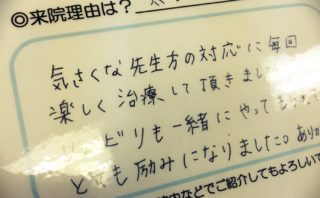 ◎来院理由は?
気さくな先生方の対応に毎回
楽しく治療して頂きました
リハビリも一緒にやってもらって
とても励みになりました。ありが
などでご紹介してもよろしいで